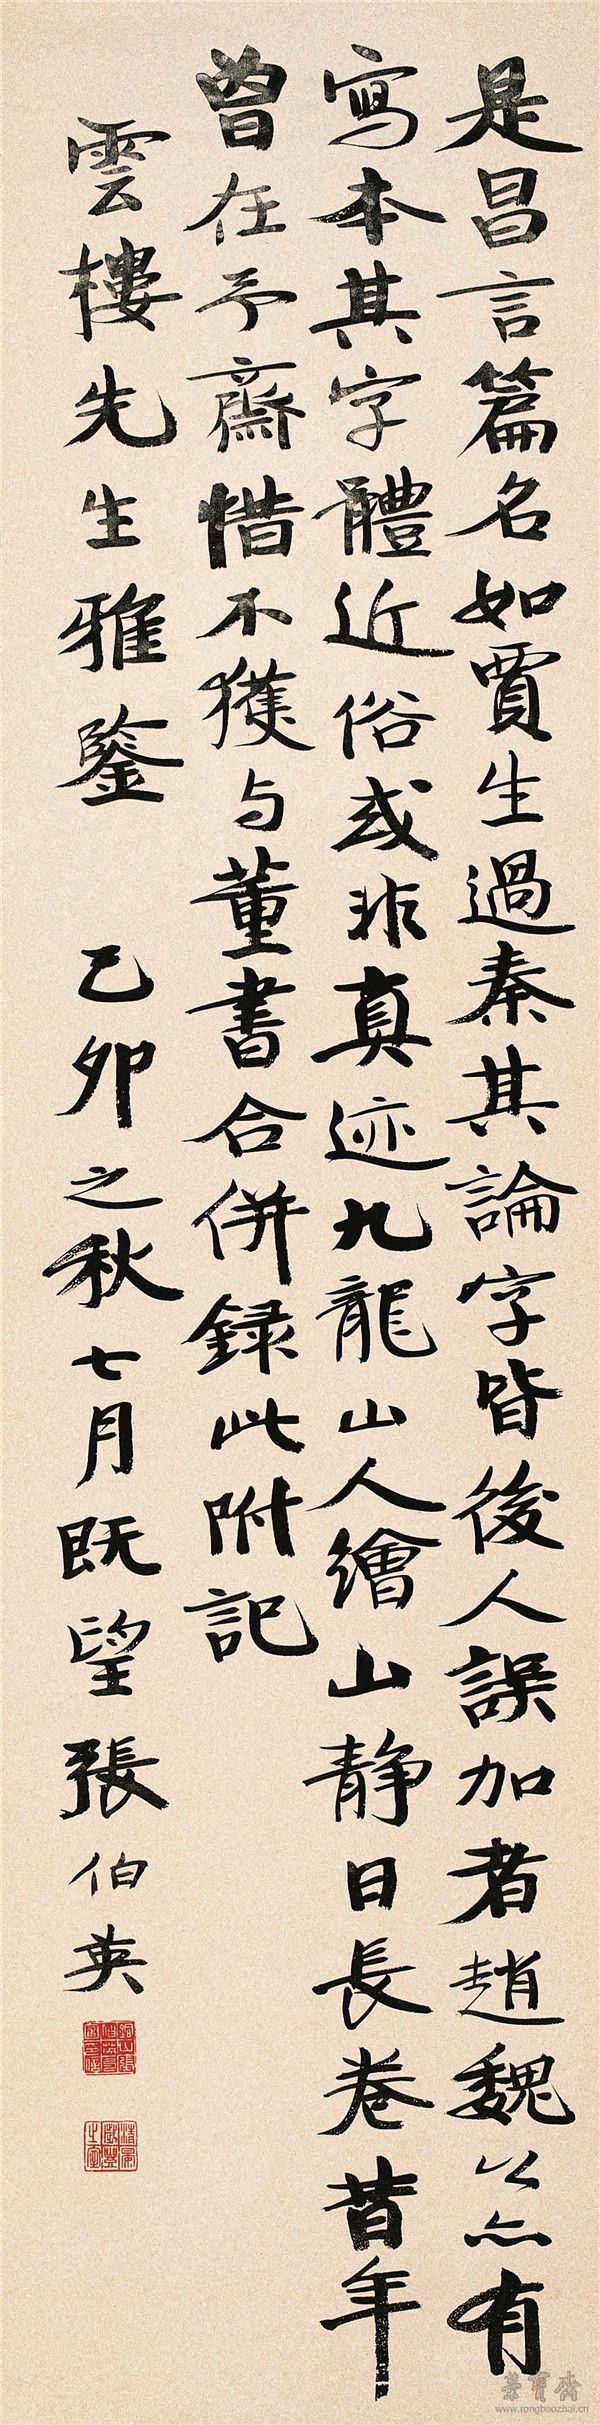 是昌言篇名如賈生過秦其論字皆後人誤加者趙魏公亦有
寫本其字體近俗或非真迹九龍山人繪山靜日長卷昔年
曾在予齋惜不獲与董書合併録此附記
雲樓先生雅鑒 己卯之秋七月既望張伯英
榮寶齋
www.rongbaozhai.cn